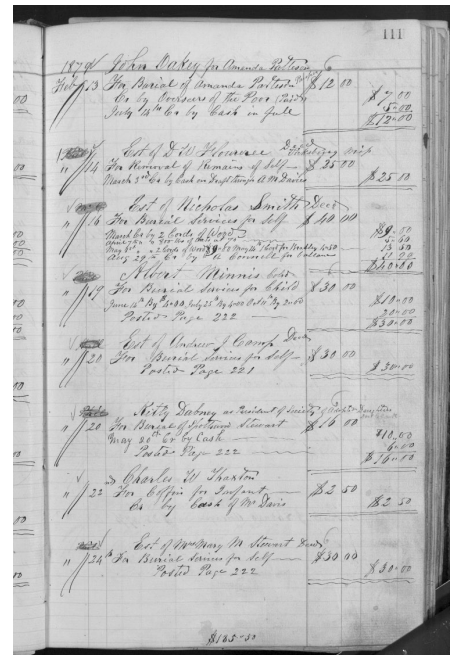 111
1879 John Oakey for Amanda Patteson
Feby 13 For Burial of Amanda Patteson $12 00
Cr by Overseers of the Poor (Paid) $7.00
July 14th Cr by Cash in full 5.00
$12.00
Est of D W Flournoy Decd Vicksburg Miss
" 14 For Removal of Remains of Self $25 00
March 3rd Cr by Cash on Draft through A M Davies $25 00
Est of Nicholas Smith Decd
" 16 For Burial Services for Self $40 00
March Cr by 2 Cords of Wood $9.00
$40.00
Albert Minnis Cold
" 19 For Burial Services for Child $30 00
June 14th By $4.00 July 25th By 4.00 Oct 11th By 2.00 $10.00
20.00
Posted Page 222 $30.00
Est of Andrew J Camp Decd
" 20 For Burial Services for Self $30 00
Posted Page 221 $30.00
Kitty Dabney as President of Society of
" 20 For Burial of Stewart $16 00
May 20th Cr by Cash $10.00
6.00
Posted Page 222 $16.00
Charles W Thaxton
" 22 For Coffin for Infant $2 50
Cr by Cash of Mr Davis $2 50
Est of Mrs Mary M Stewart Decd
" 24th For Burial Services for Self $30 00
Posted Page 222 $30.00
$185.50